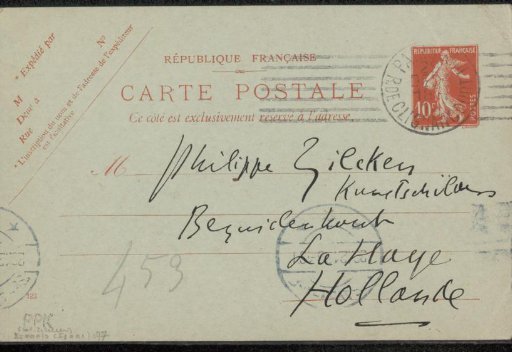 * Expédié par
N°
M
Dem t à
Rue
* L'inscription du nom et de l'adresse de l'expéditeur
est facultative
RÉPUBLIQUE FRANÇAISE
CARTE POSTALE
Ce côté est exclusivement réservé à l'adresse.
REPUBLIQUE FRANÇAISE
10c
POSTES
PARIS
RUE CLIGNANCOURT
M Philippe Zilcken
Kunstschilder
Bezuidenhout
La Haye
Hollande
453
RPK